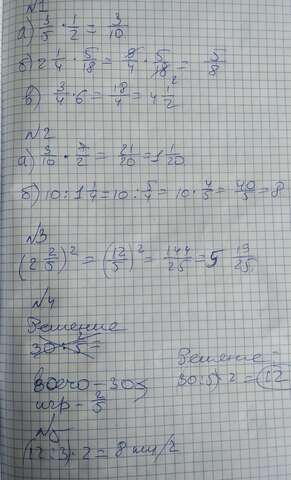 №1
а) 3/5 · 1/2 = 3/10
б) 2 1/4 · 5/18 = 9/4 · 5/18 2 = 5/8
в) 3/4 · 6 = 18/4 = 4 1/2
№2
а) 3/10 · 7/2 = 21/20 = 1 1/20
б) 10 : 1 1/4 = 10 : 5/4 = 10 · 4/5 = 40/5 = 8
№3
(2 2/5)² = (12/5)² = 144/25 = 5 19/25
№4
Решение
30 : 5 =
Решение
всего – 30
30 : 5) · 2 = 12
игр – 2/5
№5
(12 : 3) · 2 = 8